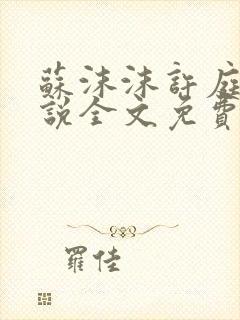 蘇沫沫許庭
說全文免費
羅佳